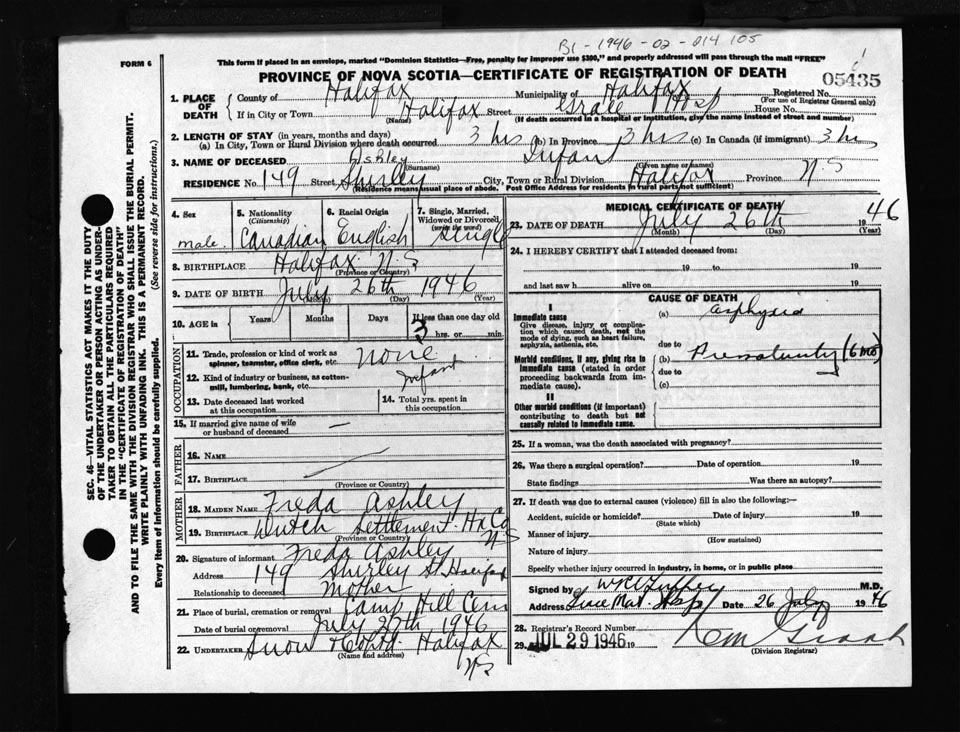 B1-1946-02-214105
FORM 6
This form if placed in an envelope, marked "Dominion Statistics—Free, penalty for improper use $300," and properly addressed will pass through the mail "FREE"
PROVINCE OF NOVA SCOTIA—CERTIFICATE OF REGISTRATION OF DEATH
05435
1. PLACE OF DEATH
County of Halifax Municipality of Halifax Registered No.
(For use of Registrar General only)
If in City or Town Halifax Street Grace Hosp House No.
(Name) (If death occurred in a hospital or institution, give the name instead of street and number)
2. LENGTH OF STAY (in years, months and days)
(a) In City, Town or Rural Division where death occurred 3 hrs (b) In Province 3 hrs (c) In Canada (if immigrant) 3 hrs
3. NAME OF DECEASED Ashley Infant
(Surname) (Given name or names)
RESIDENCE No. 149 Street Shirley City, Town or Rural Division Halifax Province N.S
(Residence means usual place of abode. Post Office Address for residents in rural parts not sufficient)
4. Sex
male
5. Nationality (Citizenship)
Canadian
6. Racial Origin
English
7. Single, Married, Widowed or Divorced (write the word)
Single
8. BIRTHPLACE Halifax N.S
(Province or Country)
9. DATE OF BIRTH July 26th 1946
(Month) (Day) (Year)
10. AGE in Years Months Days If less than one day old
3 hrs. or min.
OCCUPATION
11. Trade, profession or kind of work as spinner, teamster, office clerk, etc. none
12. Kind of industry or business, as cotton-mill, lumbering, bank, etc. Infant
13. Date deceased last worked at this occupation
14. Total yrs. spent in this occupation
15. If married give name of wife or husband of deceased —
FATHER
16. NAME
17. BIRTHPLACE
(Province or Country)
MOTHER
18. MAIDEN NAME Freda Ashley
19. BIRTHPLACE Dutch Settlement Hx Co N-S
(Province or Country)
20. Signature of informant Freda Ashley
Address 149 Shirley St Halifax
Relationship to deceased Mother
21. Place of burial, cremation or removal Camp Hill Cem
Date of burial or removal July 27th 1946
22. UNDERTAKER Snow Halifax
(Name and address)
N-S
MEDICAL CERTIFICATE OF DEATH
23. DATE OF DEATH July 26th 1946
(Month) (Day) (Year)
24. I HEREBY CERTIFY that I attended deceased from:
19 to 19
and last saw h alive on 19
CAUSE OF DEATH
I
Immediate cause
Give disease, injury or complication which caused death, not the mode of dying, such as heart failure, asphyxia, asthenia, etc.
(a) Asphyxia
due to
Morbid conditions, if any, giving rise to immediate cause (stated in order proceeding backwards from immediate cause).
(b) Prematurity (6 mo)
due to
(c)
II
Other morbid conditions (if important) contributing to death but not causally related to immediate cause.
25. If a woman, was the death associated with pregnancy?
26. Was there a surgical operation? Date of operation 19
State findings Was there an autopsy?
27. If death was due to external causes (violence) fill in also the following:—
Accident, suicide or homicide? Date of injury 19
(State which)
Manner of injury
(How sustained)
Nature of injury
Specify whether injury occurred in industry, in home, or in public place
Signed by M.D.
Address Grace Mat. Hosp Date 26 July 1946
28. Registrar's Record Number
29. JUL 29 1946 19
(Division Registrar)
SEC. 46—VITAL STATISTICS ACT MAKES IT THE DUTY
OF THE UNDERTAKER OR PERSON ACTING AS UNDER-
TAKER TO OBTAIN ALL THE PARTICULARS REQUIRED
IN THE "CERTIFICATE OF REGISTRATION OF DEATH"
AND TO FILE THE SAME WITH THE DIVISION REGISTRAR WHO SHALL ISSUE THE BURIAL PERMIT.
WRITE PLAINLY WITH UNFADING INK. THIS IS A PERMANENT RECORD.
Every item of information should be carefully supplied. (See reverse side for instructions.)